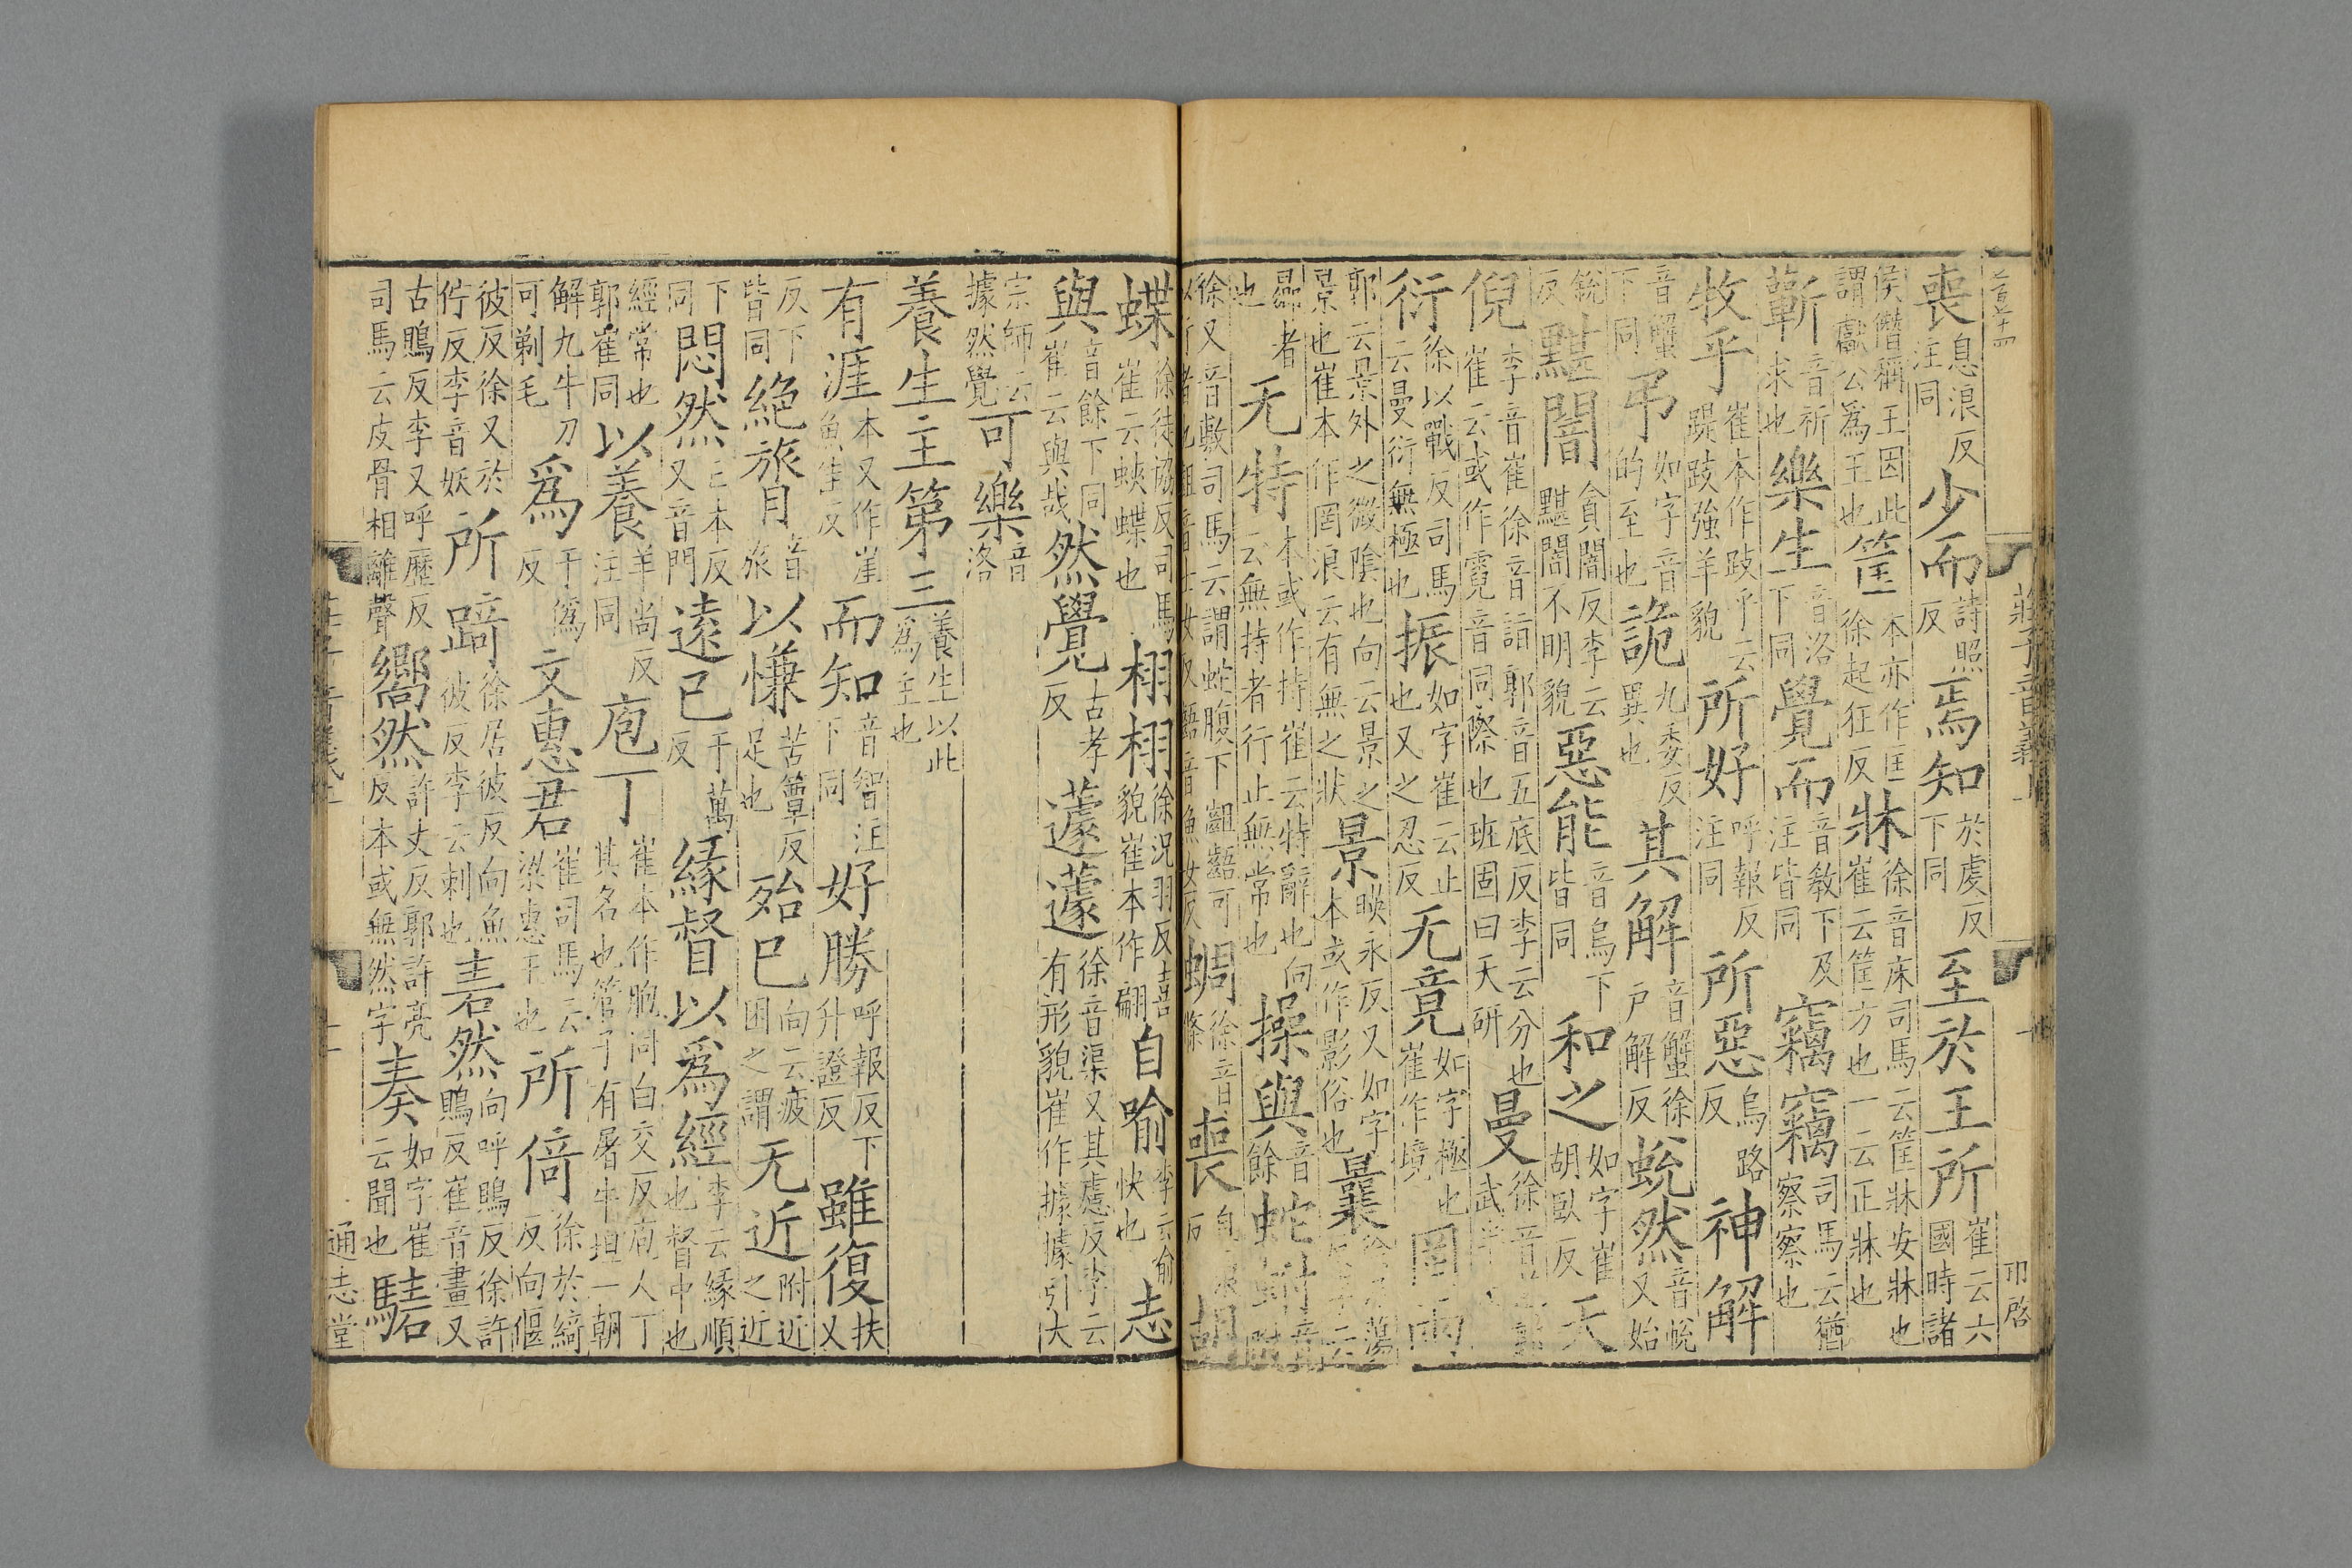 莊子音義上
喪息浪反注同少而詩照反焉知於虔反下同至於王所崔云六國時諸
侯僭稱王因此謂獻公爲王也筐本亦作匡徐起狂反牀徐音床司馬云筐牀安牀也崔云筐方也一云正牀也
蘄音祈求也樂生音洛下同覺而音敎下及注皆同竊竊司馬云猶察察也
牧乎崔本作跂乎云踶跂強羊貌所好呼報反注同所惡烏路反神解
音蟹下同弔如字音的至也詭九委反異也其解音蟹徐戶解反蛻然音帨又始
銳反黮闇貪闇反李云黮闇不明貌惡能音烏下皆同和之如字崔胡臥反天
倪李音崔徐音詣郭音五底反李云分也崔云或作霓音同際也班固曰天研曼徐音武半
衍徐以戰反司馬云曼衍無極也振如字崔云止也又之忍反无竟如字極也崔作境罔兩
郭云景外之微陰也向云景之景也崔本作罔浪云有無之狀景暎永反又如字本或作影俗也曩徐乃蕩
曏者也无特本或作持崔云特辭也向云無持者行止無常也操與音餘蛇蚹音附
徐又音敷司馬云謂蛇腹下齟齬可以行者也齟音士女反齬音魚女反蜩徐音條喪息浪反胡
蝶徐徒協反司馬崔云蛺蝶也栩栩徐況羽反喜貌崔本作翩自喻李云喻快也志
與音餘下同崔云與哉然覺古孝反蘧蘧徐音渠又其慮反李云有形貌崔作據據引大
宗師云據然覺可樂音洛
養生主第三養生以此爲主也
有涯本又作崖魚佳反而知音智注下同好勝呼報反下升證反雖復扶又
反下皆同絶膂音旅以慊苦簟反足也殆已向云疲困之謂无近附近之近
下同悶然亡本反又音門遠已于萬反緣督以爲經李云緣順也督中也
經常也郭崔同以養羊尚反注同庖丁崔本作胞同白交反庖人丁其名也管子有屠牛坦一朝
解九牛刀可剃毛爲于僞反文惠君崔司馬云梁惠王也所倚徐於綺反向偃
彼反徐又於佇反李音妖所踦徐居彼反向魚彼反李云刺也砉然向呼鵙反徐許鵙反崔音畫又
古鵙反李又呼歷反司馬云皮骨相離聲嚮然許丈反郭許亮反本或無然字奏如字崔云聞也騞
通志堂